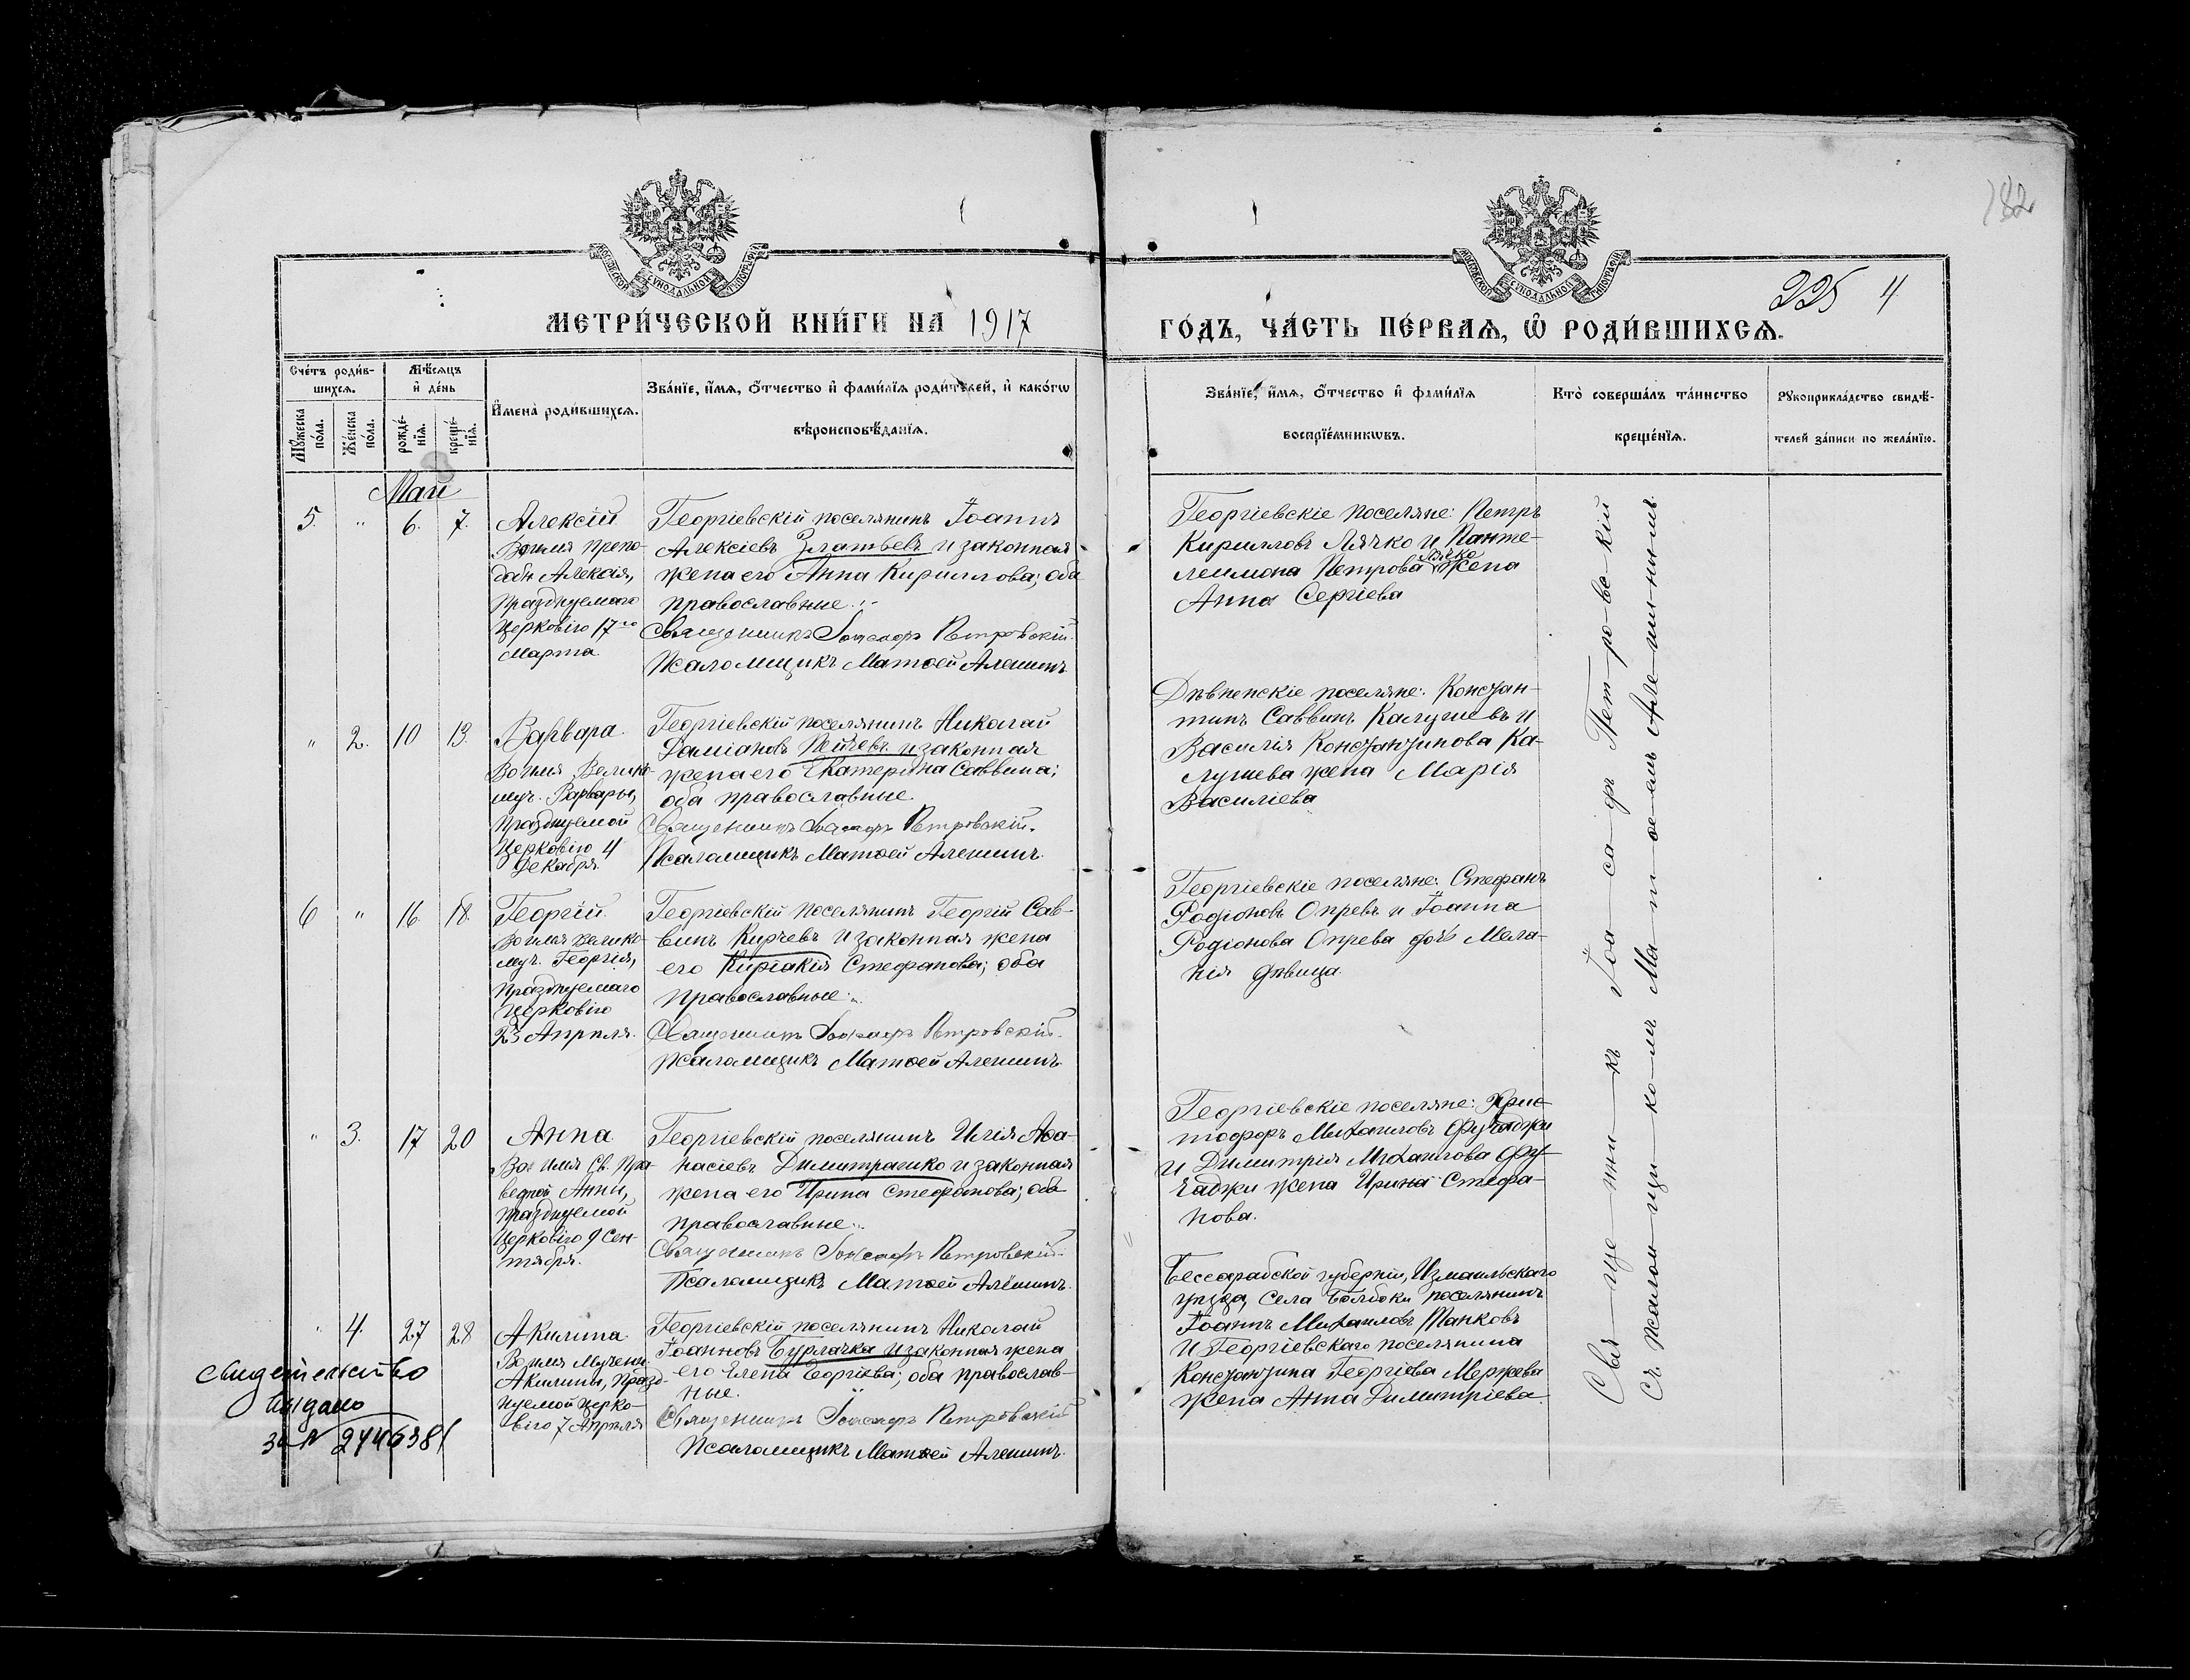 182
225 4
МЕТРИ́ЧЕСКОЙ КНИ́ГИ НА 1917
ГО́ДЪ, ЧА́СТЬ ПЕ́РВАЯ, Ѿ РОДИ́ВШИХСЯ.
Счéтъ роди́в-
шихся.
Мѣ́сяцъ
и҆ де́нь
Мꙋ́жеска
по́ла.
Же́нска
по́ла.
рожде́-
нїѧ.
креще́-
нїѧ.
И҆мена̀ роди́вшихсѧ.
Зва́нїе, и҆́мѧ, ѻ҆́тчество и҆ фами́лїѧ роди́телей, и҆ како́гѡ
вѣроисповѣ́данїѧ.
Зва́нїе, и҆́мѧ, ѻ҆́тчество и҆ фами́лїѧ
воспрїе́мникѡвъ.
Кто̀ соверша́лъ та́инство
креще́нїѧ.
Рꙋкоприкла́дство свидѣ́-
телей за́писи по жела́нїю.
Май
5. " 6. 7.
Алексій
Во имя Препо-
добн Алексія,
Празднуемаго
Церковію 17го
Марта
Георгіевскій поселянинъ Іоаннъ
Алексіевъ Златьевъ и законная
жена его Анна Кириллова; оба
православные
Священникъ Іоасафъ Петровскій
Псаломщикъ Матѳей Алешинъ
Георгіевскіе поселяне: Петръ
Кирилловъ Лячко и Панте-
леимона Петрова Лячко жена
Анна Сергіева
" 2. 10 13.
Варвара.
Во имя Велико-
муч. Варвары,
Празднуемой
Церковію 4
Декабря.
Георгіевскій поселянинъ Николай
Даміановъ Пейчевъ и законная
жена его Екатерина Саввина;
оба православные.
Священникъ Іоасафъ Петровскій.
Псаломщикъ Матѳей Алешинъ.
Дѣвненскіе поселяне: Констан-
тинъ Саввинъ Калушевъ и
Василія Константинова Ка-
лушева жена Марія
Василіева
6 " 16. 18.
Георгій.
Во имя велико-
муч. Георгія,
Празднуемаго
Церковію
23 Апрѣля.
Георгіевскій поселянинъ Георгій Сав-
винъ Кирчевъ и законная жена
его Киріакія Стефанова; оба
православные
Священникъ Іоасафъ Петровскій.
Псаломщикъ Матѳей Алешинъ
Георгіевскіе поселяне: Стефанъ
Родіоновъ Опревъ и Іоанна
Родіонова Опрева дочь Мела-
нія дѣвица.
" 3. 17 20
Анна
Во имя Св. Пра-
ведной Анны,
Празднуемой
Церковію 9 Сен-
тября.
Георгіевскій поселянинъ Илія Аѳа-
насіевъ Димитрашко и законная
жена его Ирина Стефанова; оба
православные
Священникъ Іоасафъ Петровскій.
Псаломщикъ Матѳей Алешинъ.
Георгіевскіе поселяне: Хрис-
тофоръ Михаиловъ Фучаджи
и Димитрія Михаилова Фу-
чаджи жена Ирина Стефа-
нова.
" 4. 27 28
Акилина
Во имя Мучени.
Акилины, Празд-
нуемой Церко-
вію 7 Апрѣля
Георгіевскій поселянинъ Николай
Іоанновъ Бурлачка и законная жена
его Елена Георгіева; оба православ-
ные.
Священникъ Іоасафъ Петровскій
Псаломщикъ Матѳей Алешинъ.
Бессарабской губерніи, Измаильскаго
уѣзда, села Болбоки поселянинъ
Іоаннъ Михаиловъ Танковъ
и Георгіевскаго поселянина
Константина Георгіева Мержева
жена Анна Димитріева.
Свидетельство
выдано
за N 2446381
Свя-ще-нни-къ Іоа-са-фъ Пет-ро-вс-кій
съ Псалом-щи-ко-мъ Ма-т-ѳе-емъ Але-ши-нымъ.